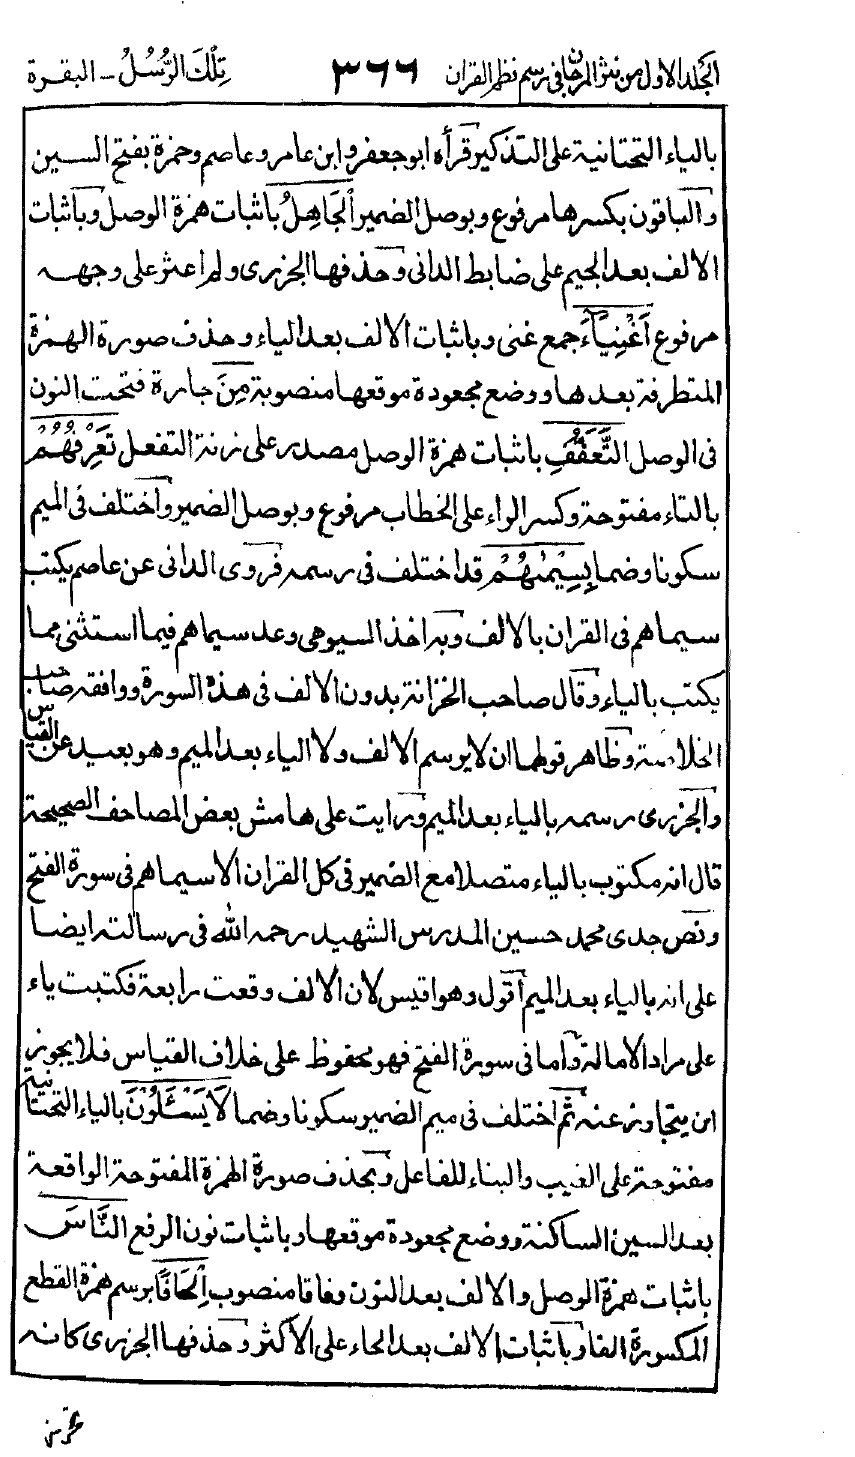 الجلد الاول من نثر المرجان فى رسم نظم القران ٣٦٦ تِلْكَ الرُّسُلُ - البقرة
بالياء التحتانية على التذكير قرأه ابو جعفر وابن عامر وعاصم وحمزة بفتح السين
والباقون بكسرها مرفوع وبوصل الضمير اَلْجَاهِلُ باثبات همزة الوصل وباثبات
الالف بعد الجيم على ضابط الدانى وحذفها الجزرى ولم اعثر على وجهه
مرفوع اَغْنِيَآءَ جمع غنى وباثبات الالف بعد الياء وحذف صورة الهمزة
المتطرفة بعدها ووضع مجعودة موقعها منصوبة مِنَ جارة فتحت النون
فى الوصل التَّعَفُّفِ باثبات همزة الوصل مصدر على زنة التفعل تَعْرِفُهُمْ
بالتاء مفتوحة وكسر الراء على الخطاب مرفوع وبوصل الضمير واختلف فى الميم
سكونا وضما بِسِيْمٰهُمْ قد اختلف فى رسمه فروى الدانى عن عاصم يكتب
سيماهم فى القران بالالف وبه اخذ السيوطى وعد سيماهم فيما استثنى مما
يكتب بالياء وقال صاحب الخزانة بدون الالف فى هذه السورة ووافقه صاحب
الخلاصة وظاهر قولهما ان لا يرسم الالف ولا الياء بعد الميم وهو بعيد عن القياس
والجزرى رسمه بالياء بعد الميم ورايت على هامش بعض المصاحف الصحيحة
قال انه مكتوب بالياء متصلا مع الضمير فى كل القران الا سيماهم فى سورة الفتح
ونص جدى محمد حسين المدرس الشهيد رحمه الله فى رسالته ايضا
على انه بالياء بعد الميم اقول وهو اقيس لان الالف وقعت رابعة فكتبت ياء
على مراد الامالة واما فى سورة الفتح فهو محفوظ على خلاف القياس فلا يجوز
ان يتجاوز عنه ثم اختلف فى ميم الضمير سكونا وضما لَا يَسْـَٔلُوْنَ بالياء التحتانية
مفتوحة على الغيب والبناء للفاعل وبحذف صورة الهمزة المفتوحة الواقعة
بعد السين الساكنة ووضع مجعودة موقعها وباثبات نون الرفع النَّاسَ
باثبات همزة الوصل والالف بعد النون وفاقا منصوب اِلْحَافًا برسم همزة القطع
المكسورة الفا وباثبات الالف بعد الحاء على الاكثر وحذفها الجزرى كانه